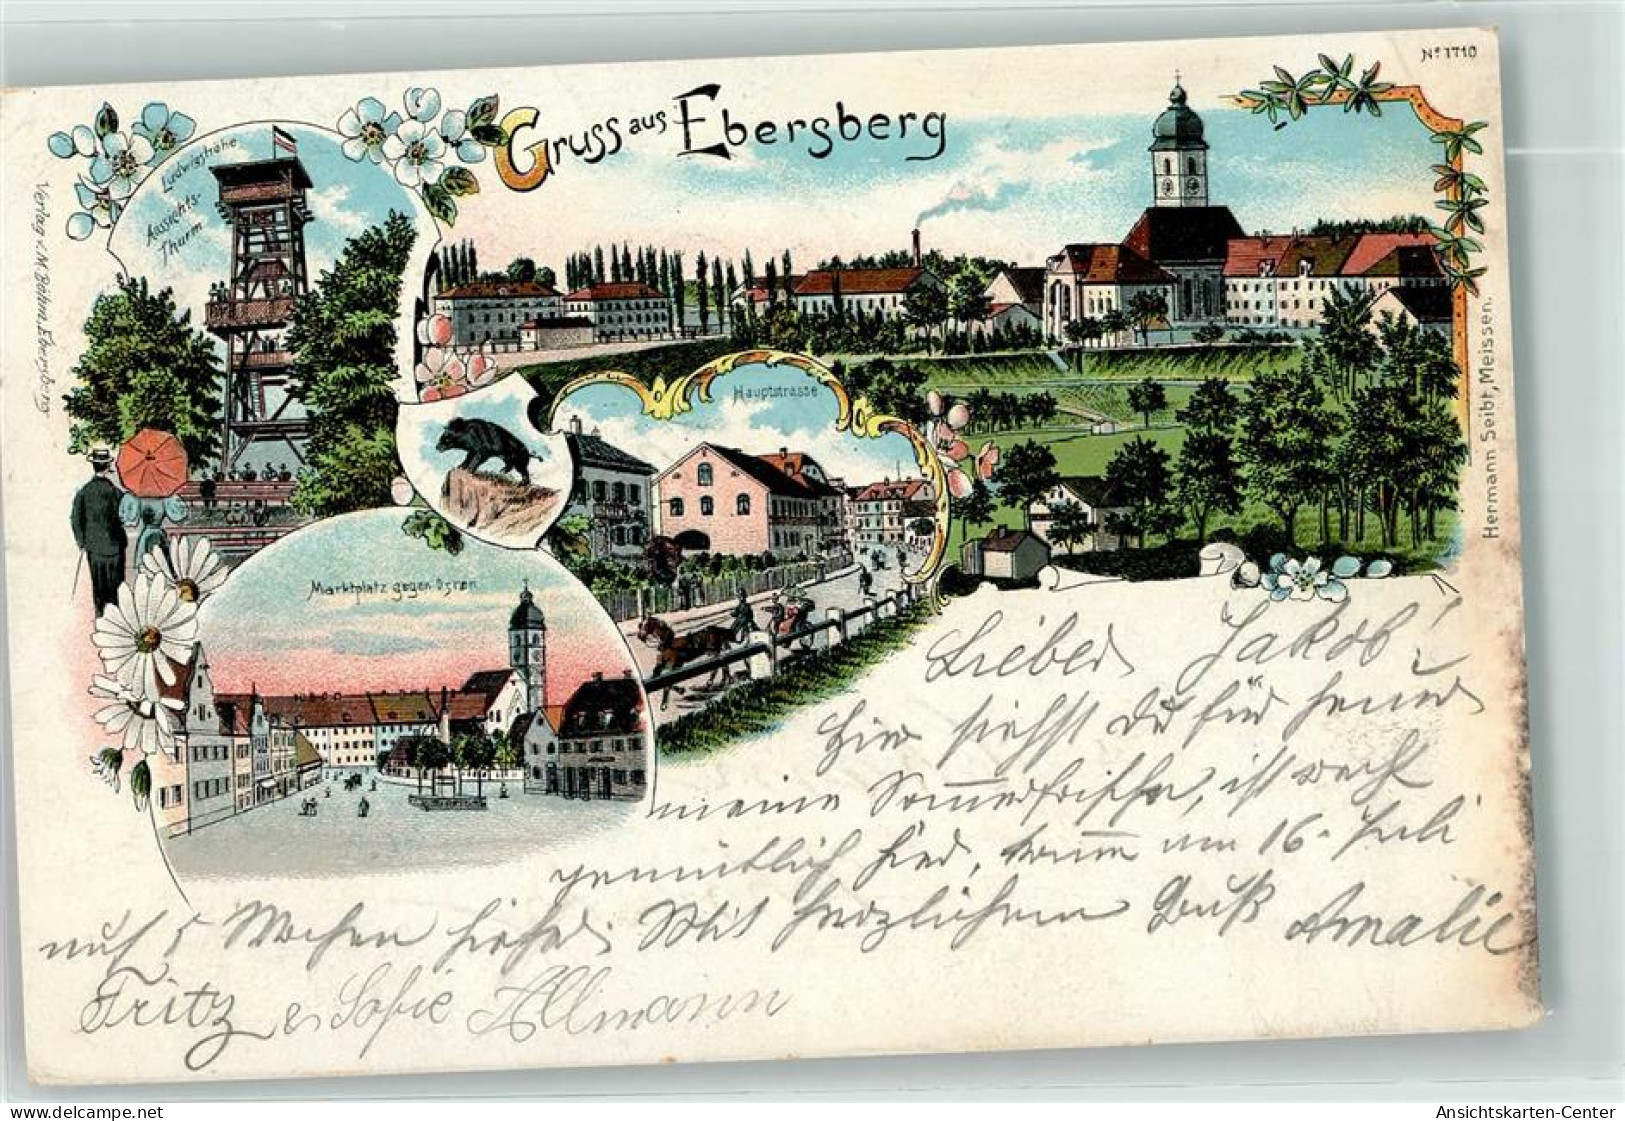 Nº 1710
Gruss aus Ebersberg
Ludwigshöhe
Aussichts-
Thurm
Verlag v. J. N. Böhm, Ebersberg
Hauptstrasse
Marktplatz gegen Osten
Hermann Seibt, Meissen.
Lieber Jakob!
Hier siehst Du für heuer
meine Sommerfrische, ist recht
gemütlich hier, komm am 16. Juli
auf 5 Wochen hieher. Mit herzlichem Gruß Amalie
Fritz & Sofie Allmann
delcampe.net
Ansichtskarten-Center